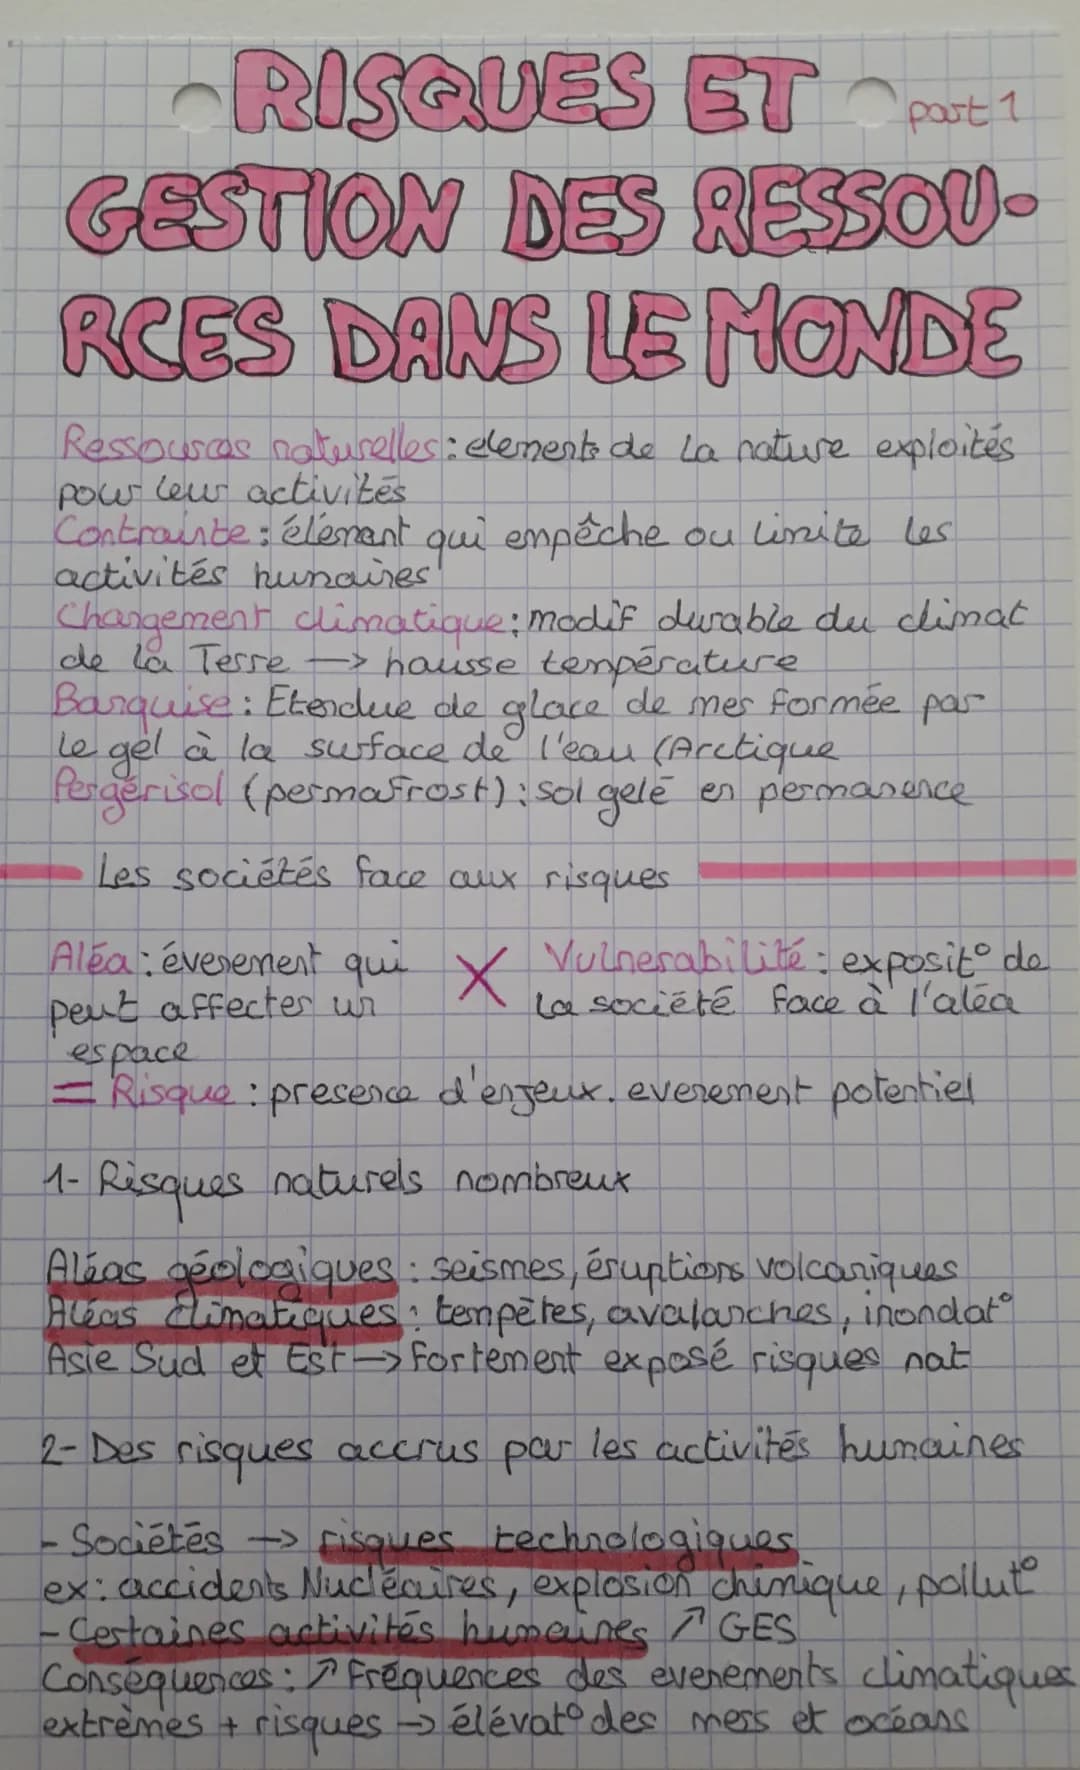 RISQUES ET part 1
GESTION DES RESSOU-
RCES DANS LE MONDE
Ressources naturelles : elements de la nature exploités
pour leur activités
Contrainte : élément qui empêche ou limite les
activités humaines
Changement climatique : modif durable du climat
de la Terre → hausse température
Banquise : Etendue de glace de mer formée par
le gel à la surface de l'eau (Arctique
Pergérisol (permafrost) : sol gelé en permanence
Les sociétés face aux risques
Aléa : évenement qui
peut affecter un
espace
X
Vulnerabilité : exposit° de
la société face à l'aléa
= Risque : presence d'enjeux. evenement potentiel
1- Risques naturels nombreux
Aléas géologiques : seismes, éruptions volcaniques
Aléas climatiques : tempêtes, avalanches, inondat°
Asie Sud et Est → Fortement exposé risques nat
2- Des risques accrus par les activités humaines
- Sociétés → risques technologiques
ex : accidents Nucléaires, explosion chimique, pollut°
- Certaines activités humaines ↗ GES
Conséquences : ↗ Fréquences des evenements climatiques
extrêmes + risques → élévat° des mers et océans